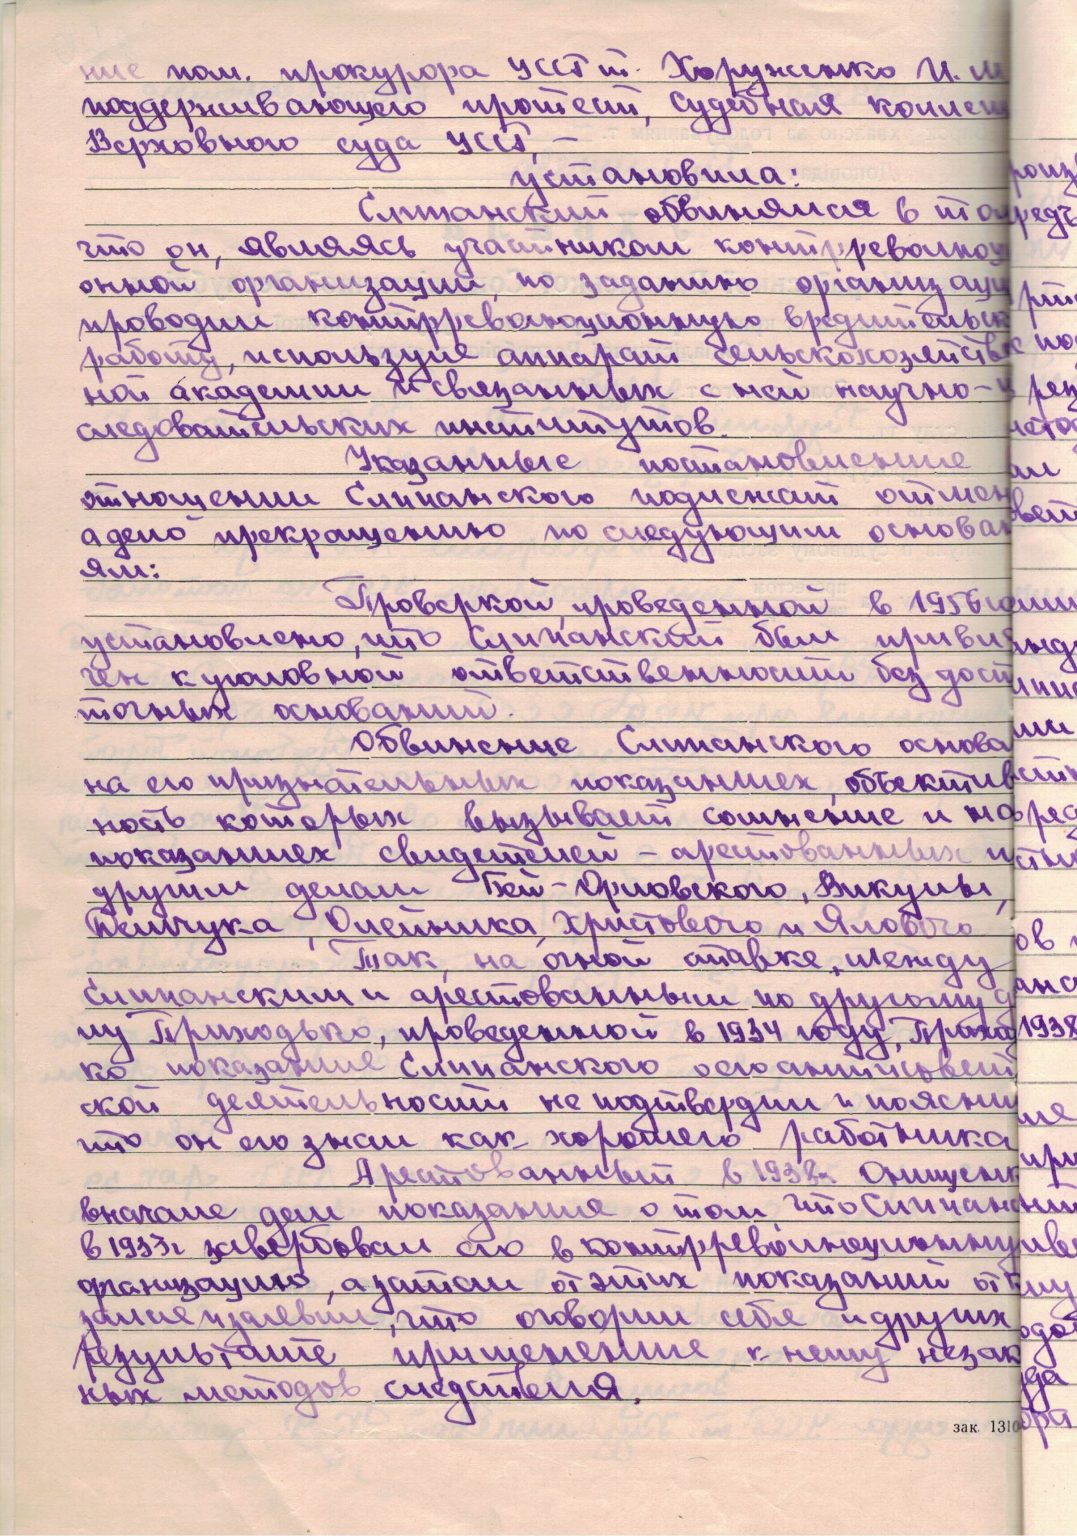 ние пом. прокурора УССР т. Хоруженко И. М
поддерживающего протест, судебная коллег
Верховного суда УССР, –
установила:
Слипанский обвинялся в том
что он, являясь участником контрреволюц
онной организации, по заданию организаци
проводил контрреволюционную вредительск
работу, используя аппарат сельскохозяйств
ной академии и связанных с ней научно-и
следовательских институтов.
Указанные постановление
отношении Слипанского подлежит отмен
а дело прекращению по следующим основан
ям:
Проверкой, проведенной в 1956 г
установлено, что Слипанский был привле
чен к уголовной ответственности без дост
точных оснований.
Обвинение Слипанского основа
на его признательных показаниях, объектив
ность которых вызывает сомнение и на
показаниях свидетелей – арестованных п
другим делам Бей-Орловского, Викулы,
Тетчука, Олейника, Христового и Ялового
Так, на очной ставке, между
Слипанским и арестованным по другому д
лу Приходько, проведенной в 1934 году, Приход
ко показания Слипанского о его антисовет
ской деятельности не подтвердил и пояснил
что он его знал как хорошего работника
Арестованный в 1938г Онищенк
вначале дал показания о том, что Слипанс
в 1933г завербовал его в контрреволюционную
организацию, а затем от этих показаний отк
зался заявил, что оговорил себя и других
результате применение к нему незак
ных методов следствия.
зак. 1310